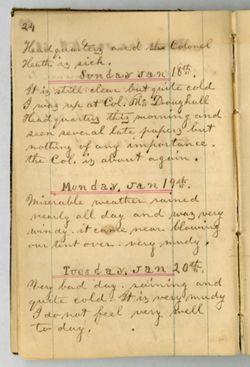 24
Headquarters and the Colonel
Heath is sick.
Sonday Jan 18th.
It is still clear but quite cold
I was up at Col. Mc Doughall
Headquarters this morning and
seen several late papers but
nothing of any importance.
the Col. is about again.
Monday, Jan 19th.
Miserable weather rained
nearly all day and was very
windy. it came near blowing
our tent over. very mudy.
Toesday, Jan 20th.
Very bad day. raining and
quite cold. It is very mudy
I do not feel very well
to day.